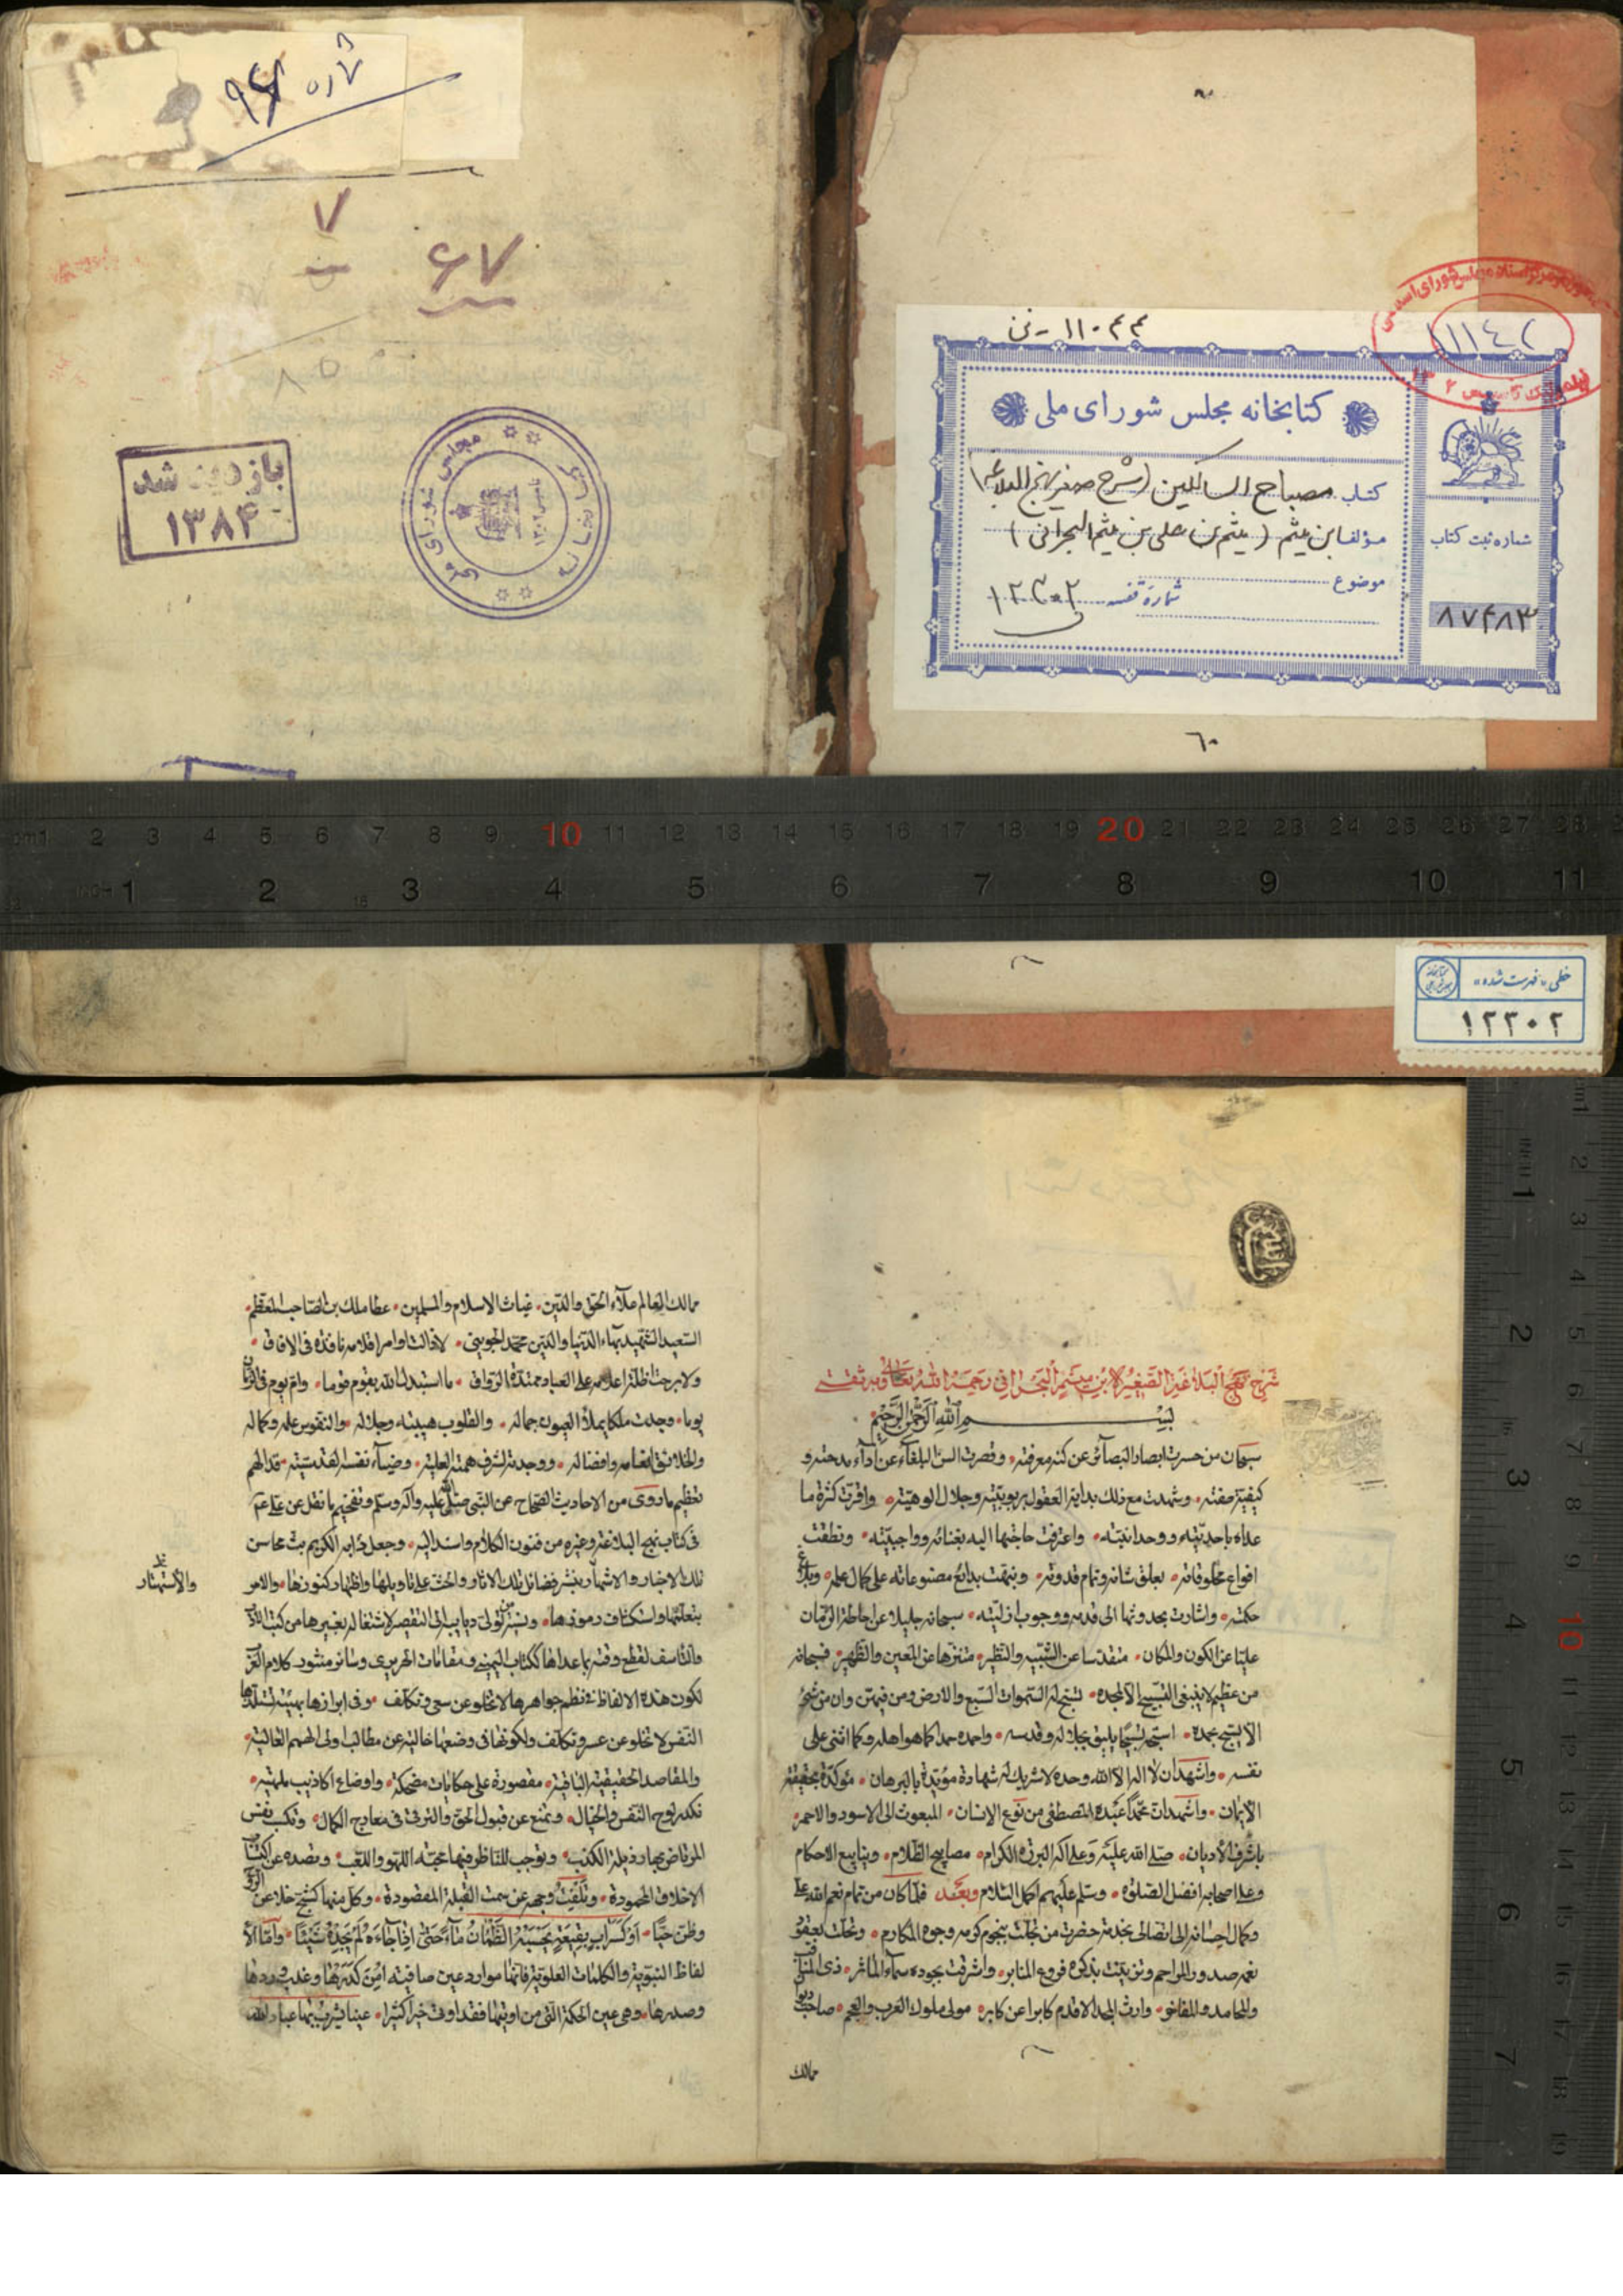 شماره ۹۴۸
۷
۶۷
۸۵
بازدید شد
۱۳۸۴
کتابخانه مجلس شورای ملی
۱۱۰۴۴-ن
۱۱۱۴۲
کتابخانه مجلس شورای ملی
کتاب مصباح السالکین (شرح صغیر نهج البلاغه)
مؤلف ابن میثم (میثم بن علی بن میثم البحرانی)
موضوع
شماره قفسه ۱۲۳۰۲
شماره ثبت کتاب
۸۷۴۸۳
خطی «فهرست شده»
۱۲۳۰۲
شرح نهج البلاغة الصغير لابن ميثم البحراني رحمه الله تعالى وبه ثقتي
بسم الله الرحمن الرحيم
سبحان من حسرت ابصار البصائر عن كنه معرفته وقصرت السن البلغاء عن اداء مدحته و
كيفية صفته وشهدت مع ذلك بداية العقول بربوبيته وجلال الوهيته واقرت كثرة ما
عداه باحديته ووحدانيته واعترفت حاجتها اليه بغنائه وواجبيته ونطقت
افواع مخلوقاته بعلو شانه وتمام قدرته ونبهت بدائع مصنوعاته على كمال علمه وبلاغ
حكمته واشارت بحدوثها الى قدمه ووجوب ازليته سبحانه جليلا عن احاطة الزمان
عليا عن الكون والمكان متقدسا عن الشبيه والنظير متنزها عن المعين والظهير فسبحانه
من عظيم لا ينبغي التسبيح الا لمجده تسبح له السموات السبع والارض ومن فيهن وان من شئ
الا يسبح بحمده اسبحه تسبيحا يليق بجلاله وقدسه واحمده حمدا كما هو اهله وكما اثنى على
نفسه واشهد ان لا اله الا الله وحده لا شريك له شهادة مؤيدة بالبرهان مؤكدة بحقيقة
الايمان واشهد ان محمدا عبده المصطفى من نوع الانسان المبعوث الى الاسود والاحمر
باشرف الاديان صلى الله عليه وعلى اله البررة الكرام مصابيح الظلام وينابيع الاحكام
وعلى اصحابه افضل الصلوة وسلم عليهم اكمل السلام وبعد فلما كان من تمام نعم الله على
وكمال احسانه الى اتصالي بخدمة حضرت من تجلت بنجوم كرمه وجوه المكارم وتحلت بعقود
نعمه صدور المراحم وتزينت بذكره فروع المنابر واشرقت بجوده سماء الماثر ذى المناقب
والمحامد والمفاخر وارث المجد الاقدم كابرا عن كابر مولى ملوك العرب والعجم صاحب ديوان
ممالك
ممالك العالم علاء الحق والدين غياث الاسلام والمسلمين عطا ملك بن الصاحب المعظم
السعيد الشهيد بهاء الدنيا والدين محمد الجويني لا زالت اوامر اقلامه نافذة في الافاق
ولا برحت اظلة اعلامه على العباد ممتدة الرواق ما استبدل الله بقوم قوما وام يوم في الزمان
يوما وجدت ملكا يملأ العيون جماله والقلوب هيبته وجلاله والنفوس علمه وكماله
والخلائق انعامه وافضاله ووجدته لشرف همته العلية وضياء نفسه القدسية قد الهم
تعظيم ما روى من الاحاديث الصحاح عن النبي صلى الله عليه واله وسلم وتفخيم ما نقل عن على عم
في كتاب نهج البلاغة وغيره من فنون الكلام واسند اليه وجعل دأبه الكريم بث محاسن
تلك الاخبار والاشهار بنشر فضائل تلك الاثار والحث على تاويلها واظهار كنوزها والامر
والاستهتار
بتعلمها واستكشاف رموزها
والتاسف لقطع وقته بما عداها ككتاب اليميني ومقامات الحريري وسائر منثور كلام العرب
لكون هذه الالفاظ في نظم جواهرها لا تخلو عن سعي وتكلف وفي ابرازها بهيئة تستلذها
النفس لا تخلو عن عسر وتكلف ولكونها في وضعها خالية عن مطالب اولى الهمم العالية
والمقاصد الحقيقية الباقية مقصورة على حكايات مضحكة واوضاع اكاذيب ملهية
تكدر لوح النفس والخيال وتمنع عن قبول الحق والترقي في معارج الكمال وتكسب نفس
المرتاض بها رذيلة الكذب وتوجب للناظر فيها محبة اللهو واللعب وتصده عن اكتساب
الاخلاق المحمودة وتلفت وجهه عن سمت القبلة المقصودة وكل منها كشبح خلا عن الروح
وظن حيا او كسراب بقيعة يحسبه الظمآن ماء حتى اذا جاءه لم يجده شيئا واما الا
لفاظ النبوية والكلمات العلوية فانها موارد عين صافية امن كدرها وعذب وردها
وصدرها وهي عين الحكمة التي من اوتيها فقد اوتي خيرا كثيرا عينا يشرب بها عباد الله